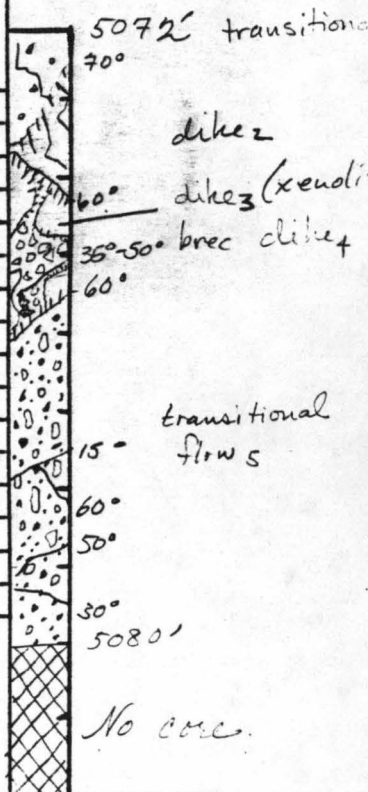 5072' transitiona
70°
dike₂
60°
dike₃ (xenoli
35°-50° brec dike₄
60°
transitional
15°
flow₅
60°
50°
30°
5080'
No core.